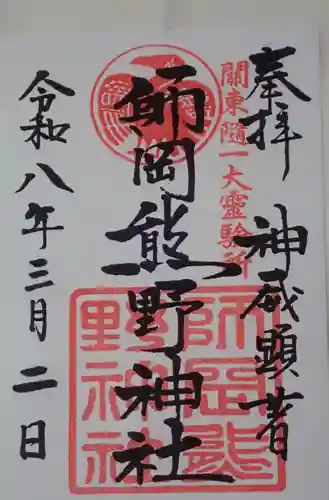 奉拝 神威顕著
關東随一大靈驗所
師岡熊野神社
師岡熊野神社
令和八年三月二日